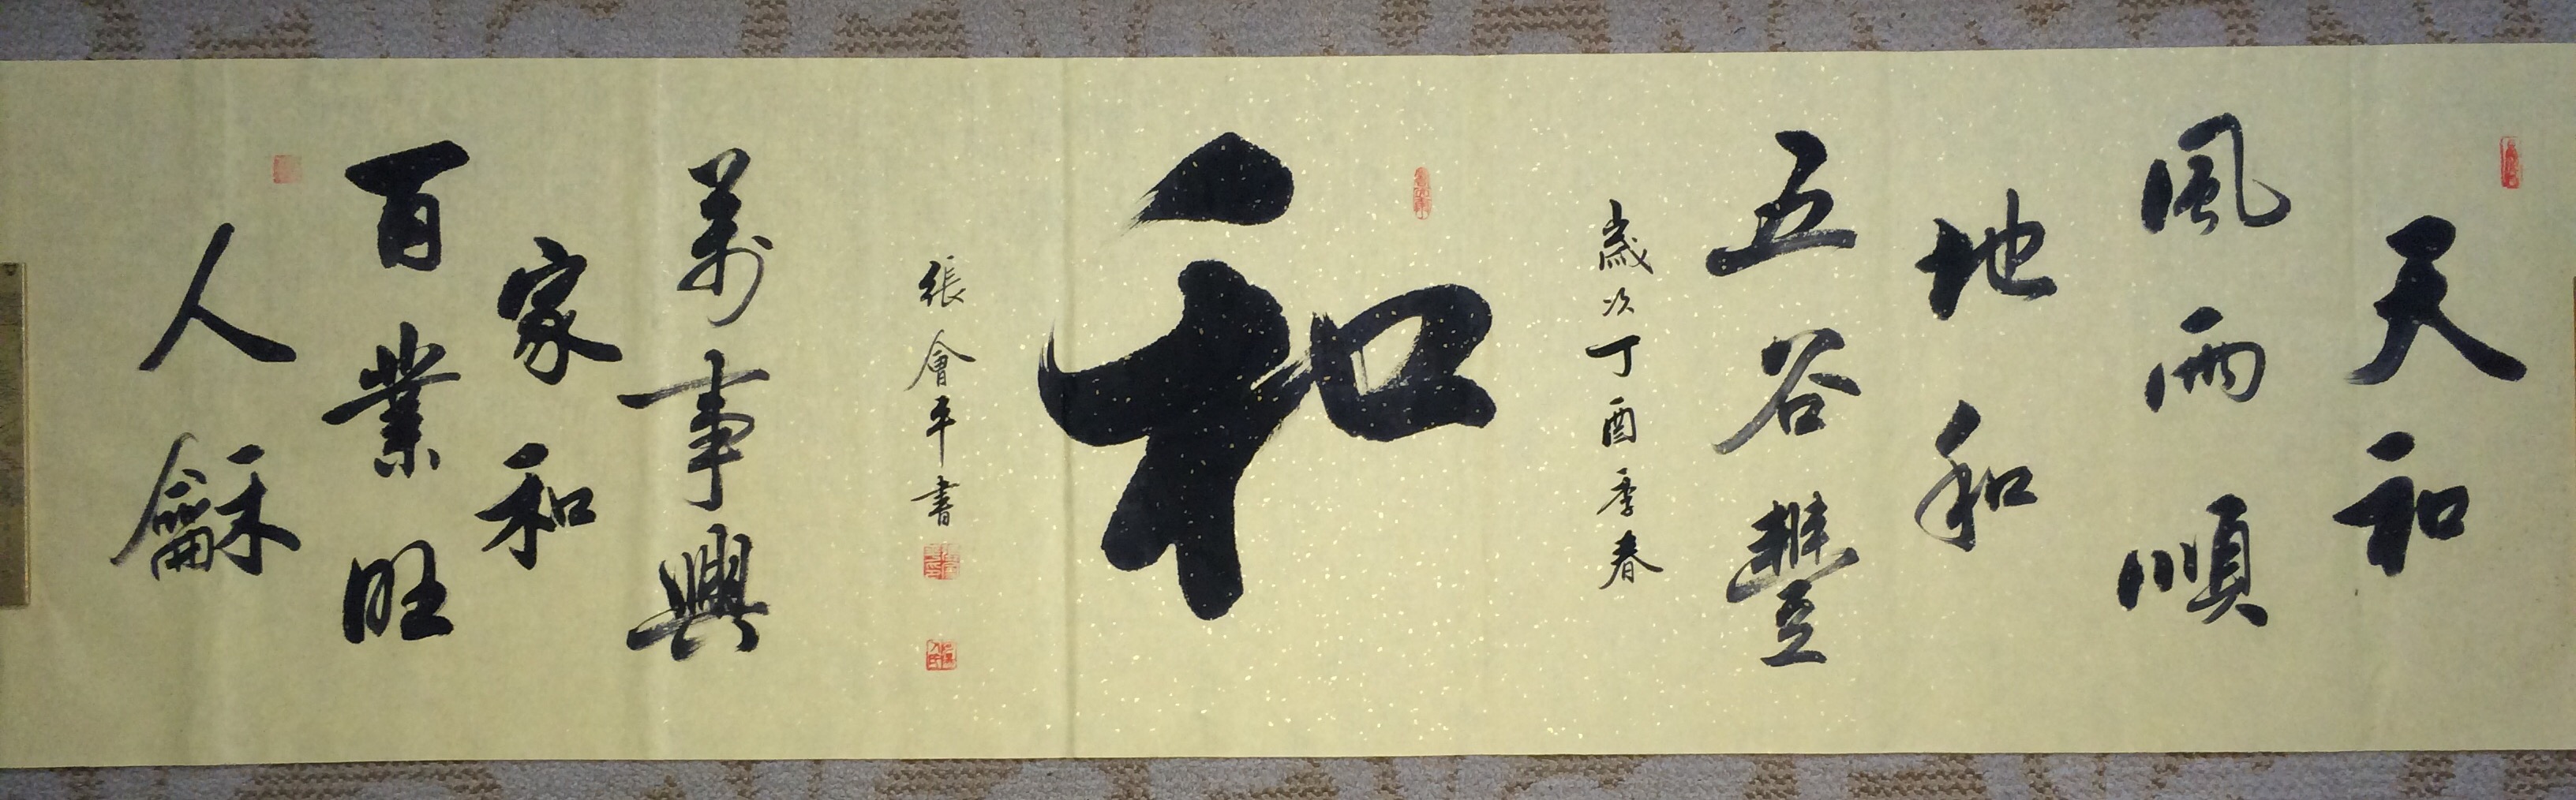 天和
風雨順
地和
五谷豐
歲次丁酉季春
和
張會平書
萬事興
家和
百業旺
人龢